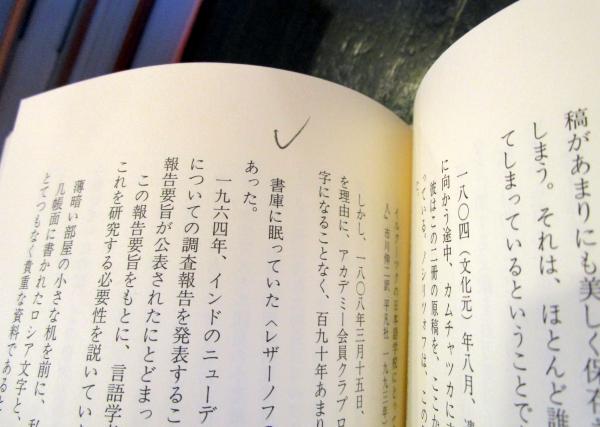 稿があまりにも美しく保存さ
しまう。それは、ほとんど誰
てしまっているということで
一八〇四（文化元）年八月、遭
に向かう途中、カムチャツカに
彼はこの二冊の原稿を、ここか
っている。ノシリツォフは、この
イルクーツクの日本語学校にとって
人』市川伸二訳 平凡社 一九九三年）
しかし、一八〇八年三月十五日、
を理由に、アカデミー会員クラプロ
字になることなく、百九十年あまり
書庫に眠っていた〈レザーノフの
あった。
一九六四年、インドのニューデ
についての調査報告を発表するこ
報告要旨が公表されたにとどまっ
この報告要旨をもとに、言語学
これを研究する必要性を説いてい
薄暗い部屋の小さな机を前に、私
几帳面に書かれたロシア文字と、
とてつもなく貴重な資料であると